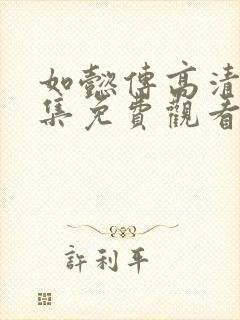 如懿傳高清
集免費觀看
許利平